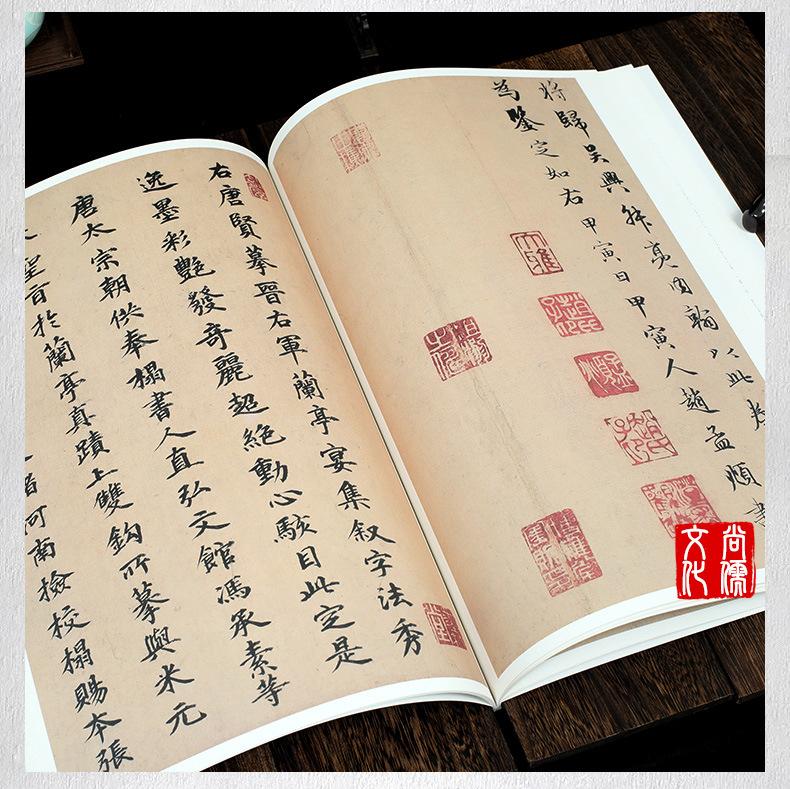 将歸吳興叔亮内翰以此卷
為鑒定如右甲寅日甲寅人趙孟頫書
大雅
右唐賢摹晉右軍蘭亭宴集叙字法秀
逸墨彩艷發奇麗超絶動心駭目此定是
唐太宗朝供奉榻書人直弘文館馮承素等
聖旨於蘭亭真蹟上雙鈎所摹與米元
河南檢校榻賜本張
尚儒
文化